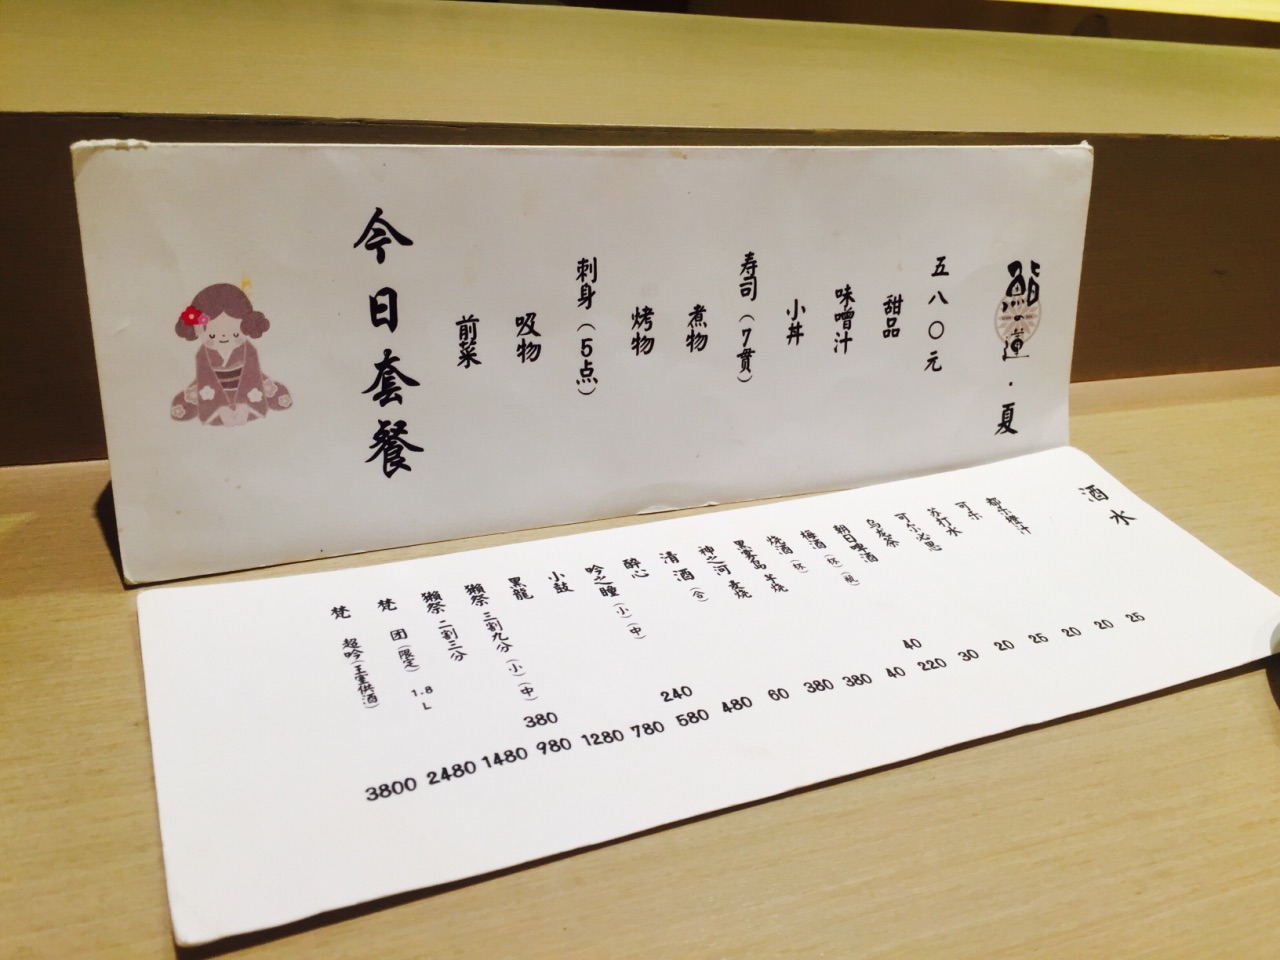 今日套餐
前菜
吸物
刺身(5点)
烤物
煮物
寿司(7贯)
小丼
味噌汁
甜品
五八〇元
鮨の蓮・夏
酒水
都乐橙汁 25
可乐 20
苏打水 20
可尔必思 25
乌龙茶 20
朝日啤酒 30
梅酒(杯)(瓶) 40 220
烧酒(杯) 40
黑雾岛 芋烧 380
神之河 麦烧 380
清酒(合) 60
醉心 480
吟之瞳(小)(中) 240 580
小鼓 780
黑龍 1280
獭祭 三割九分(小)(中) 380 980
獭祭 二割三分 1480
梵 团(限定) 1.8L 2480
梵 超吟(王室供酒) 3800